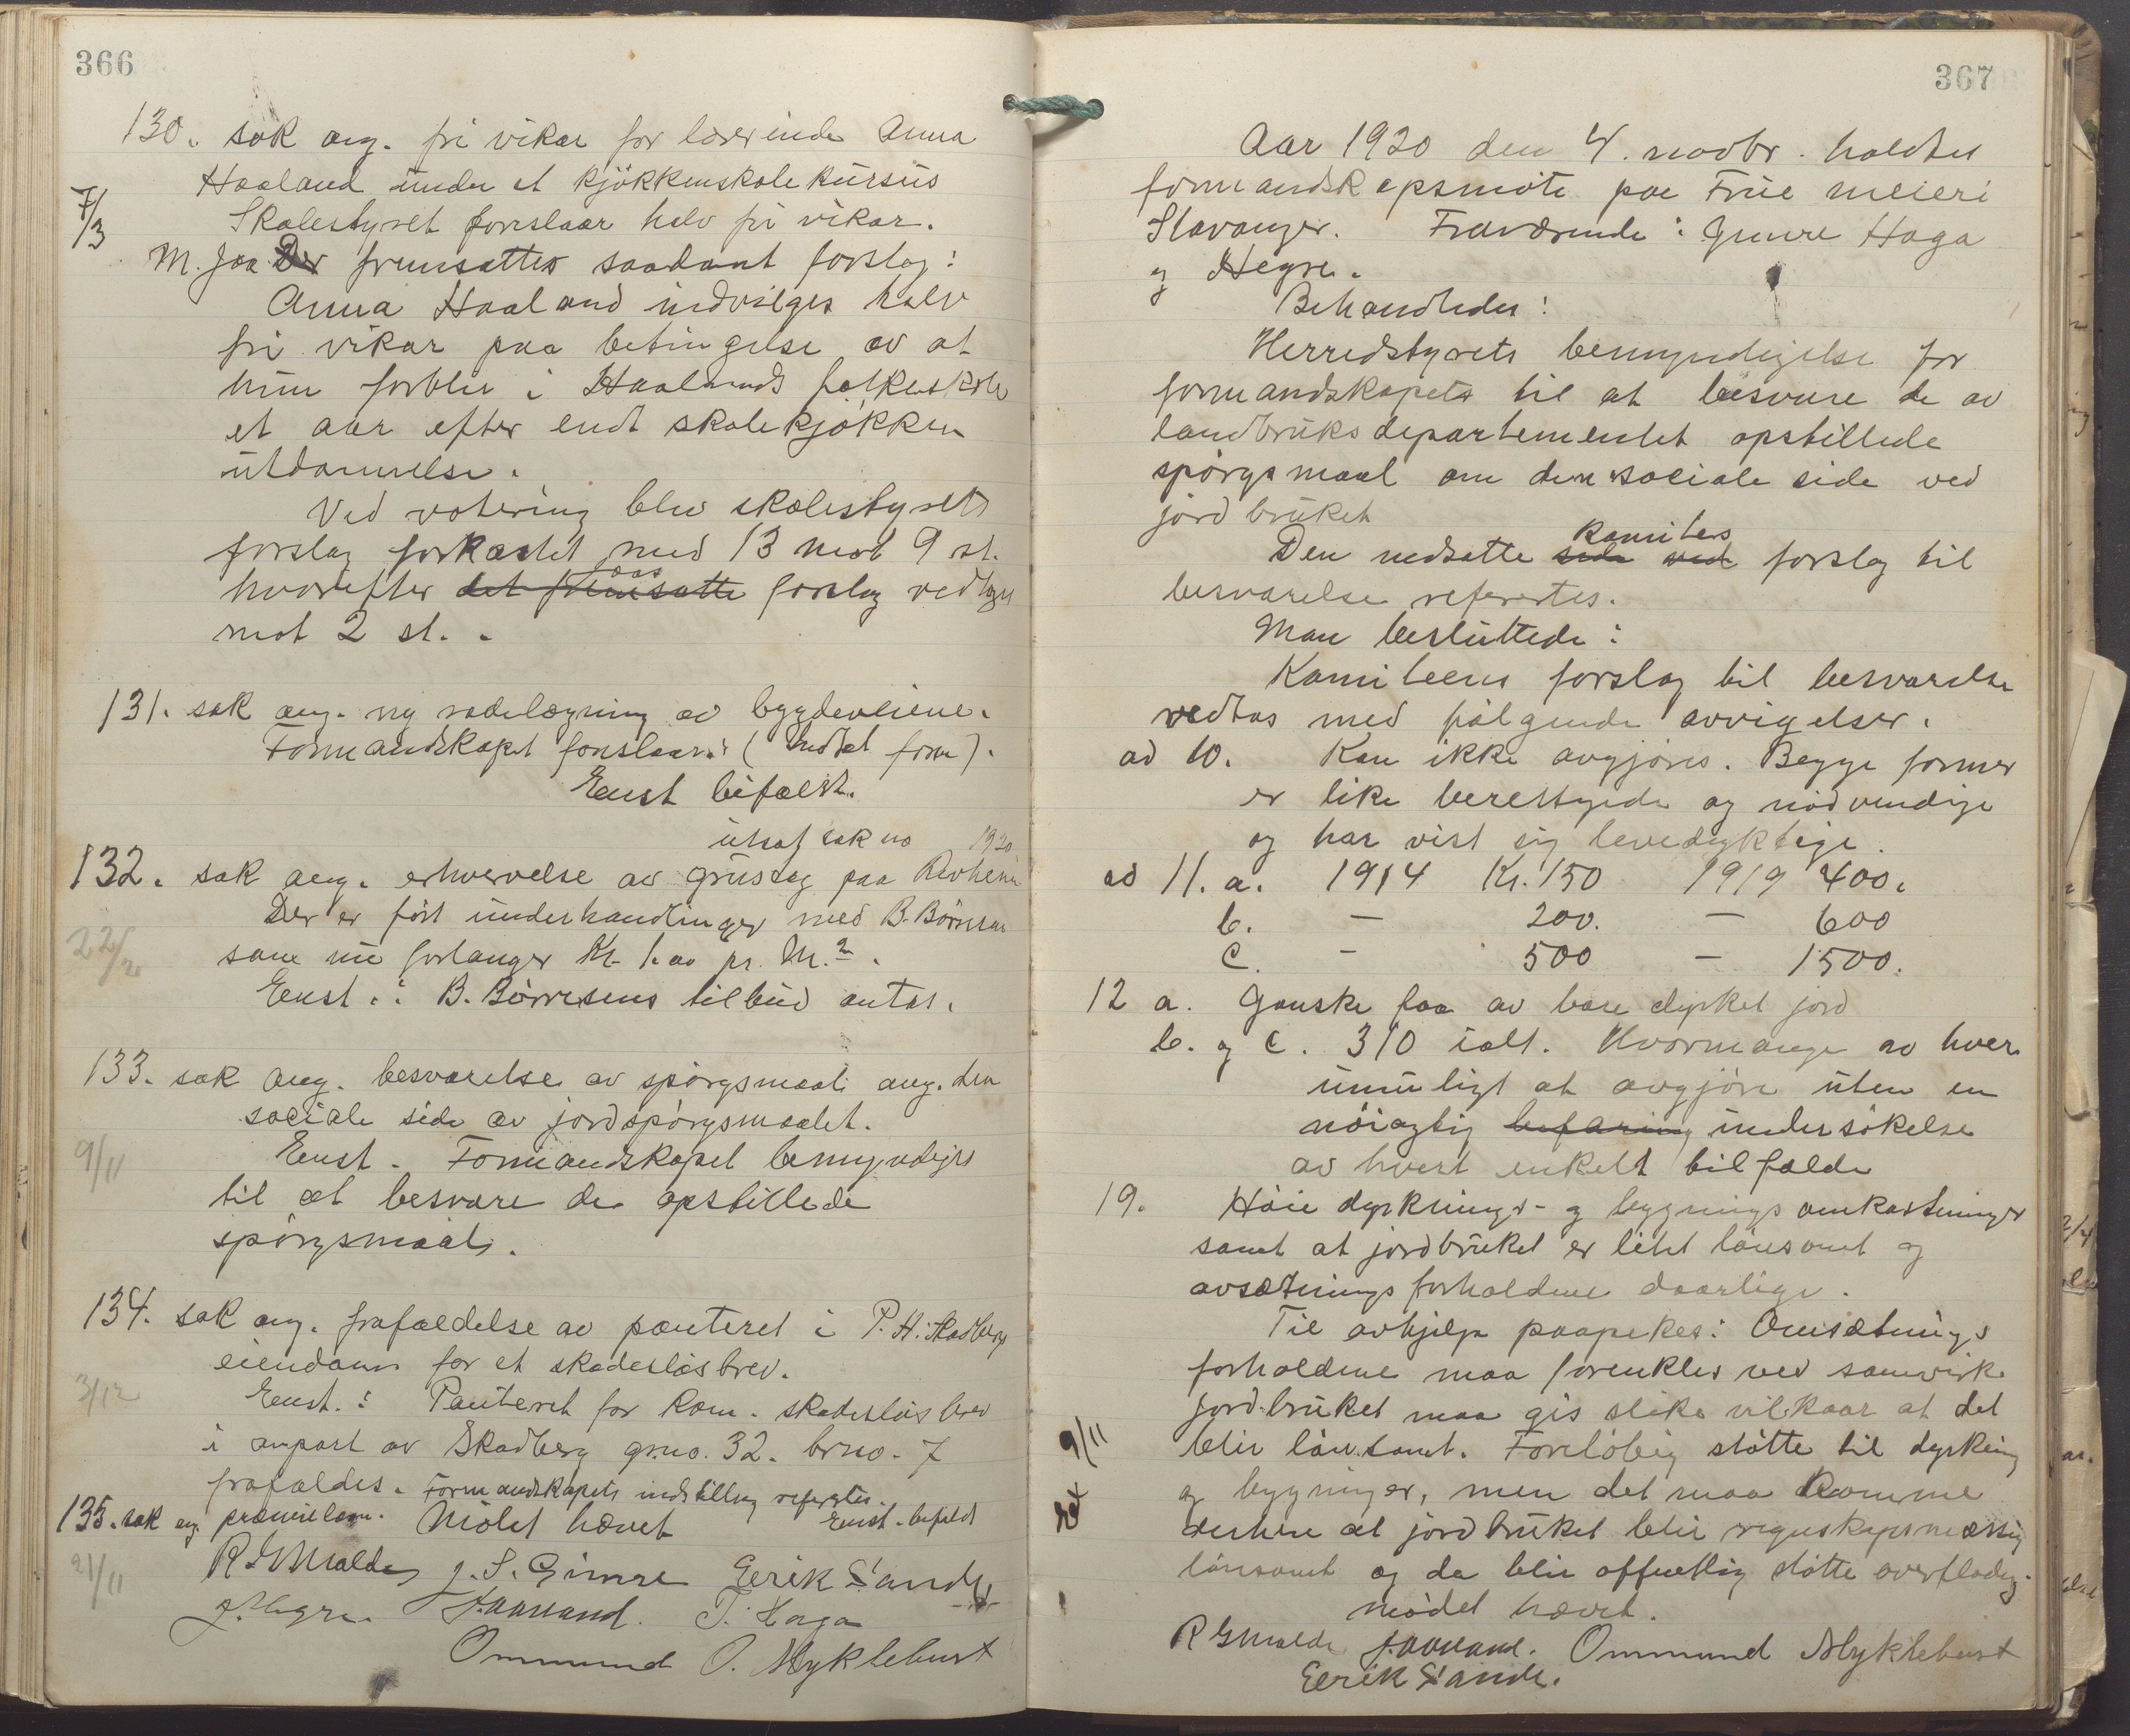 366
130. sak ang. fri vikar for lærerinde Anna
Haaland under et kjøkkenskolekursus
7/3
Skolestyret foreslaar halv fri vikar.
M. Jaa Der fremsattes saadant forslag:
Anna Haaland indvilges halv
fri vikar paa betingelse av at
hun forblir i Haalands folkeskole
et aar efter endt skolekjøkken
utdannelse.
Ved votering blev skolestyrets
forslag forkastet med 13 mot 9 st.
hvorefter det fremsatte forslag vedtages
mot 2 st.
131. sak ang. ny rodelægning av bygdeveiene.
Formandskapet foreslaar: (indtat form).
Enst bifaldt.
utsat sak no 1920
132. sak ang. erhvervelse av grustag paa
Der er ført underhandlinger med B. Börresen
22/2
som nu forlanger Kr. 1.00 pr. M.2.
Enst.: B. Börresens tilbud antas.
133. sak ang. besvarelse av spørgsmaal ang. den
sociale side av jordspørgsmaalet.
9/11
Enst. Formandskapet bemyndiges
til at besvare de opstillede
spørgsmaal.
134. sak ang. frafaldelse av panteret i P. H. Skadbergs
eiendom for et skadesløsbrev.
3/12
Enst.: Panteret for kom. skadesløsbrev
i anpart av Skadberg grno. 32. brno. 7
frafaldes. Formandskapets indstilling refertes.
135. sak ang. præmielaan. Mötet hævet Enst. bifaldt
21/11
R Gmalde J. S. Gimre Eerik Sande
J. Hegre. T. Haga
Ommund O. Myklebust
367
Aar 1920 den 4. novbr. holdtes
formandskapsmöte paa Frue meieri
Stavanger. Fraværende: Gimre Haga
og Hegre.
Behandledes:
Herredstyrets bemyndigelse for
formandskapets til at besvare de av
landbruksdepartementet opstillede
spørgsmaal om den sociale side ved
jordbruket
komites
Den nedsatte side ved forslag til
besvarelse refertes.
Man besluttede:
Komiteens forslag til besvarelse
vedtas med følgende avvigelser.
ad 10. Kan ikke avgjøres. Begge former
er like berettigede og nödvendige
og har vist sig levedyktige.
ad 11. a. 1914 Kr. 150 1919 400.
b. — 200. — 600
c. — 500 — 1500.
12 a. Ganske faa av bare dyrket jord
b. og c. 310 ialt. Hvormange av hver
umuligt at avgjøre uten en
nöiagtig befaring undersökelse
av hvert enkelt tilfælde
19. Höie dyrknings- og bygningsomkostninger
samt at jordbruket er litet lönsomt og
avsætningsforholdene daarlige.
Til avhjelp paapekes: Omsætnings
forholdene maa forenkles ved samvirke
jordbruket maa gis slike vilkaar at det
9/11
blir lönsomt. Foreløbig stötte til dyrking
og bygninger, men det maa komme
derhen at jordbruket blir regnskapsmæssig
lönsomt og da blir offentlig stötte overflödig.
mödet hævet.
R Gmalde Ommund Myklebust
Eerik Sande.